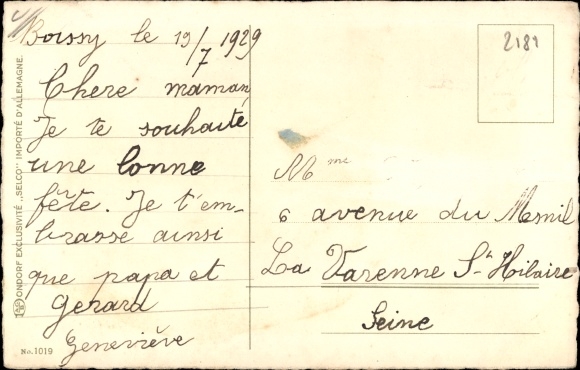 Boissy le 19/7 1929
Chere maman,
Je te souhaite
une bonne
fête. Je t'em-
brasse ainsi
que papa et
Gerard
Geneviève
2181
Mme
6 avenue du Mesnil
La Varenne St Hilaire
Seine
ONDORF EXCLUSIVITÉ „SELCO" IMPORTÉ D'ALLEMAGNE.
No. 1019